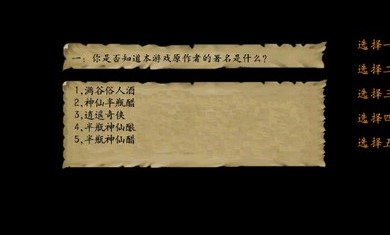 一：你是否知道本游戏原作者的署名是什么?
选择一
选择二
选择三
选择四
选择五
1,满谷俗人酒
2,神仙半瓶醋
3,逍遥奇侠
4,半瓶神仙酿
5,半瓶神仙醋